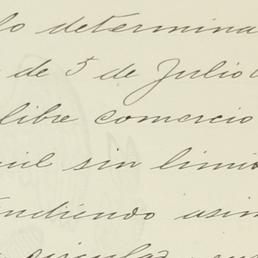 lo determina
de 5 de Julio
libre comercio
sin limi
ndiendo asim